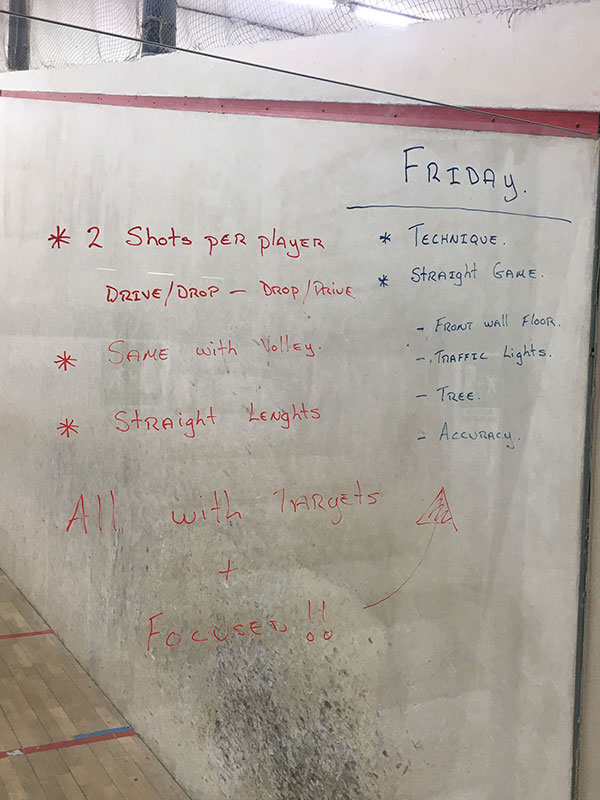 FRIDAY.
* 2 Shots PER player
DRIVE/DROP - DROP/DRIVE
* SAME with Volley.
* Straight Lenghts
All with TARgets
+
FOCUSED !!
* TECHNIQUE.
* STRAIGHT GAME.
- FRONT WALL FLOOR.
- TRAFFIC Lights.
- TREE.
- ACCURACY.